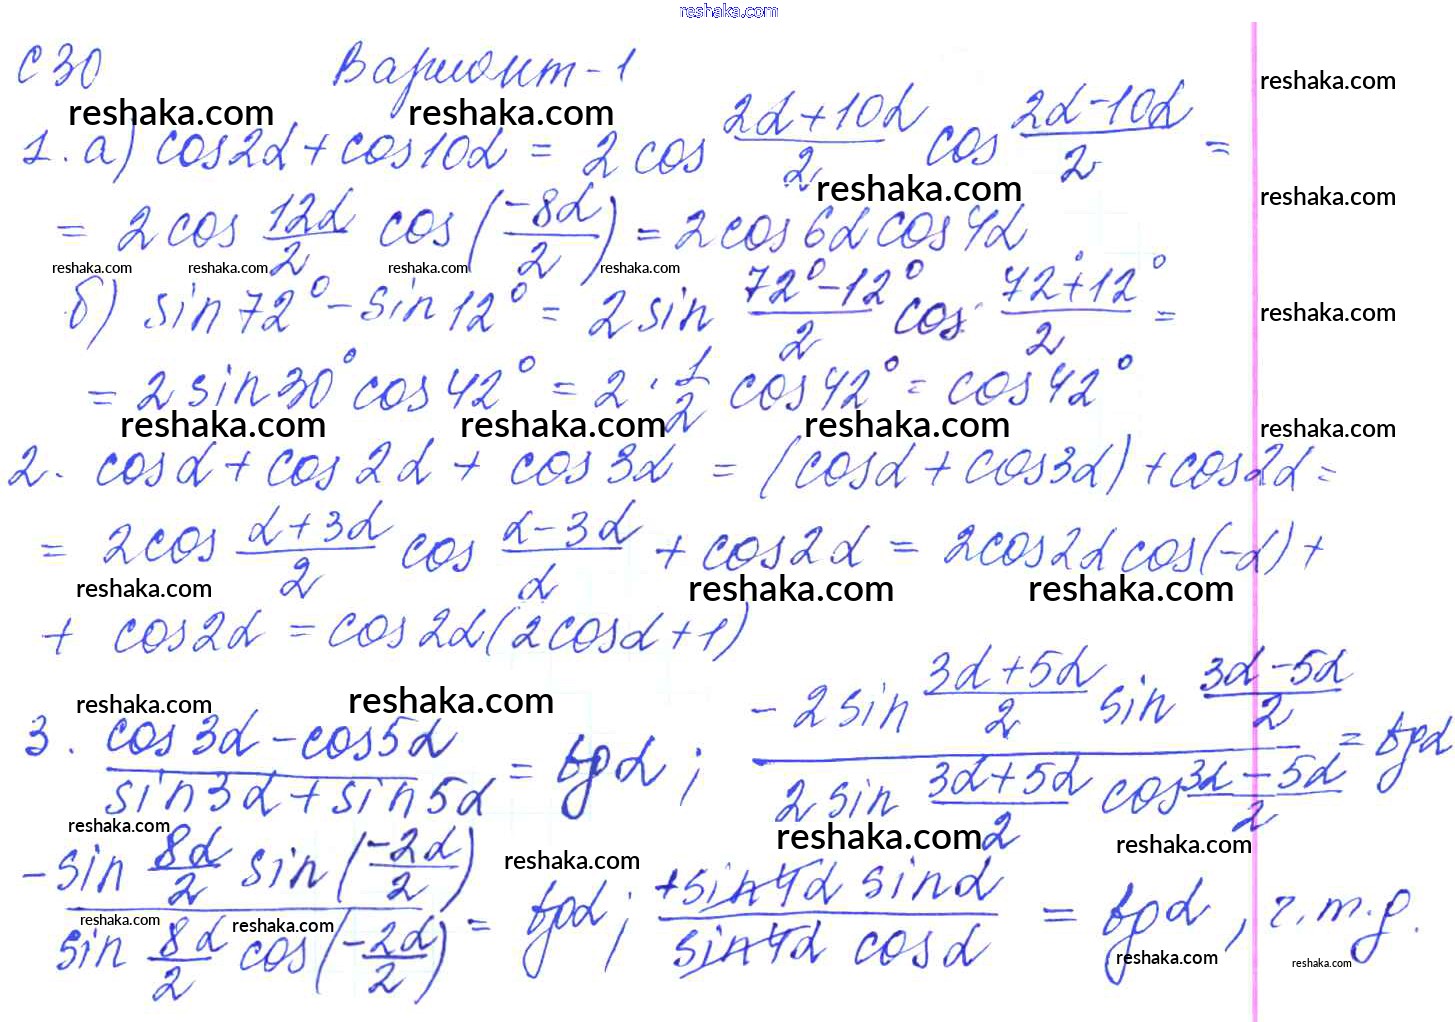 reshaka.com
С 30 Вариант-1
reshaka.com reshaka.com reshaka.com
1. а) cos2α + cos10α = 2 cos (2α+10α)/2 cos (2α-10α)/2 =
reshaka.com reshaka.com
= 2 cos 12α/2 cos (-8α/2) = 2 cos 6α cos 4α
reshaka.com reshaka.com reshaka.com reshaka.com
б) sin 72° - sin 12° = 2 sin (72°-12°)/2 cos (72°+12°)/2 =
reshaka.com
= 2 sin 30° cos 42° = 2 · 1/2 cos 42° = cos 42°
reshaka.com reshaka.com reshaka.com reshaka.com
2. cosα + cos 2α + cos 3α = (cosα + cos3α) + cos2α =
= 2cos (α+3α)/2 cos (α-3α)/α + cos2α = 2cos2α cos(-α) +
reshaka.com reshaka.com reshaka.com
+ cos2α = cos2α(2cosα+1)
reshaka.com reshaka.com
3. (cos3α - cos5α)/(sin3α + sin5α) = tgα ; (-2 sin (3α+5α)/2 sin (3α-5α)/2)/(2 sin (3α+5α)/2 cos (3α-5α)/2) = tgα
reshaka.com reshaka.com reshaka.com reshaka.com
(-sin 8α/2 sin (-2α/2))/(sin 8α/2 cos (-2α/2)) = tgα ; (+sin4α sinα)/(sin4α cosα) = tgα , ч.т.д.
reshaka.com reshaka.com reshaka.com reshaka.com